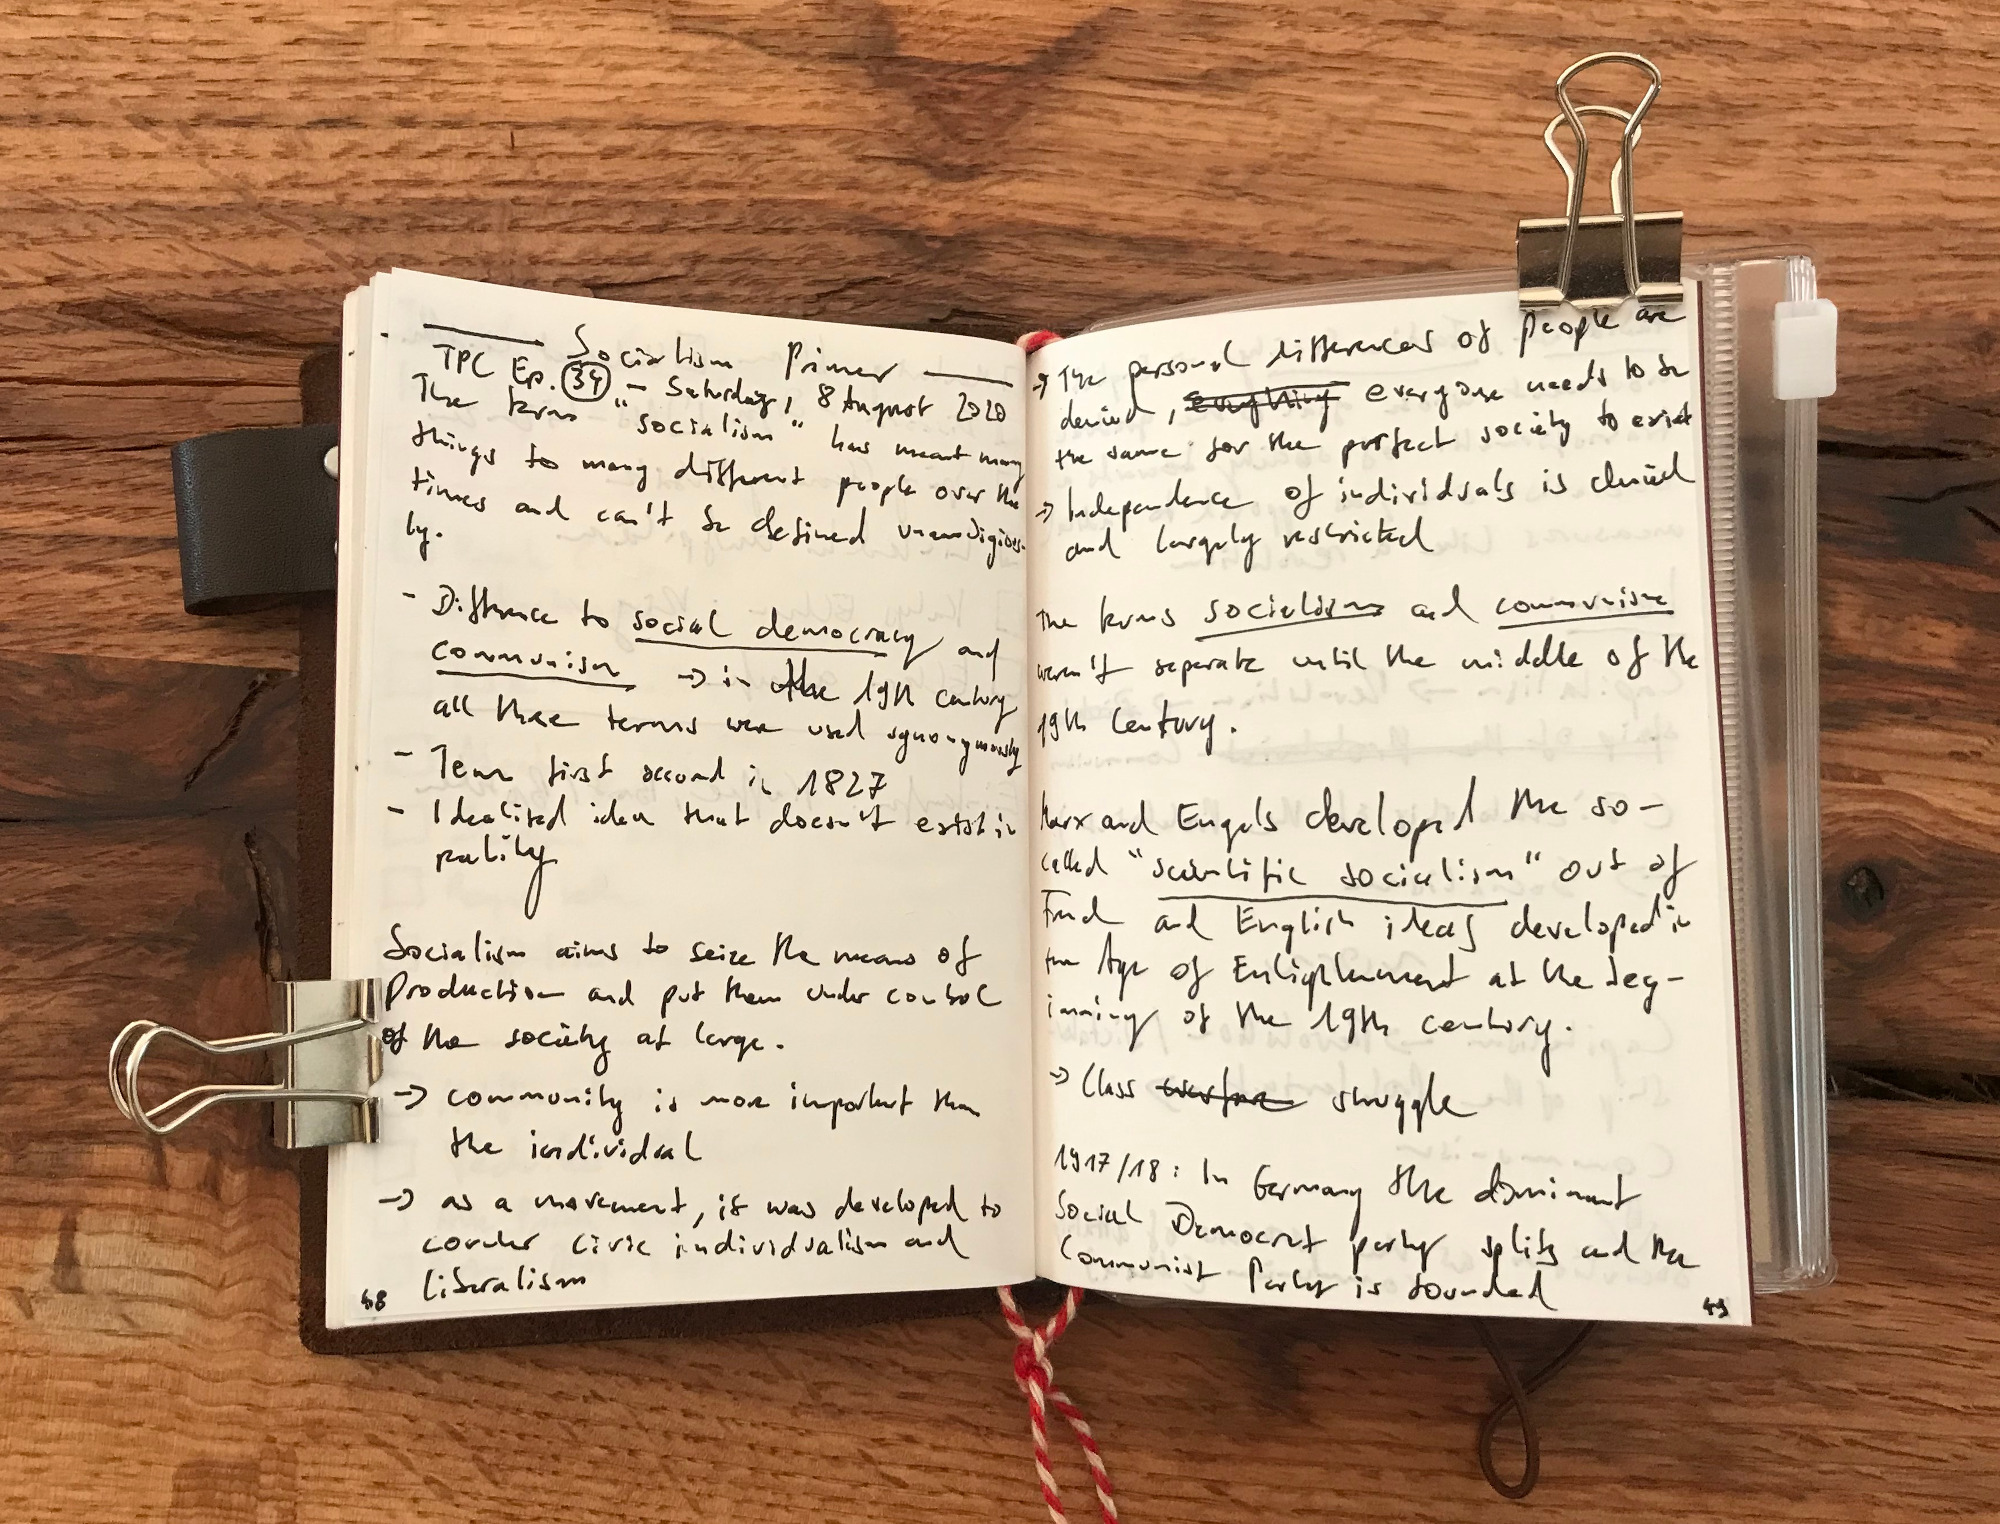 Socialism Primer
TPC Ep. 34 - Saturday, 8 August 2020
The term "socialism" has meant many
things to many different people over the
times and can't be defined
ly.
- Difference to social democracy and
communism → in the 19th century
all these terms were used synonymously
- Term first second in 1827
- Idealised idea that doesn't exist in
reality
Socialism aims to seize the means of
Production and put them under control
of the society at large.
→ community is more important than
the individual
→ as a movement, it was developed to
counter civic individualism and
liberalism
48
→ The personal differences of people are
denied, everything everyone needs to be
the same for the perfect society to exist
→ Independence of individuals is denied
and largely restricted
The terms socialism and communism
weren't separate until the middle of the
19th Century.
Marx and Engels developed the so-
called "scientific socialism" out of
and English ideas developed in
the Age of Enlightenment at the beg-
inning of the 19th century.
→ Class warfare struggle
1917/18: In Germany the dominant
Social Democrat party splits and the
Communist Party is founded
49